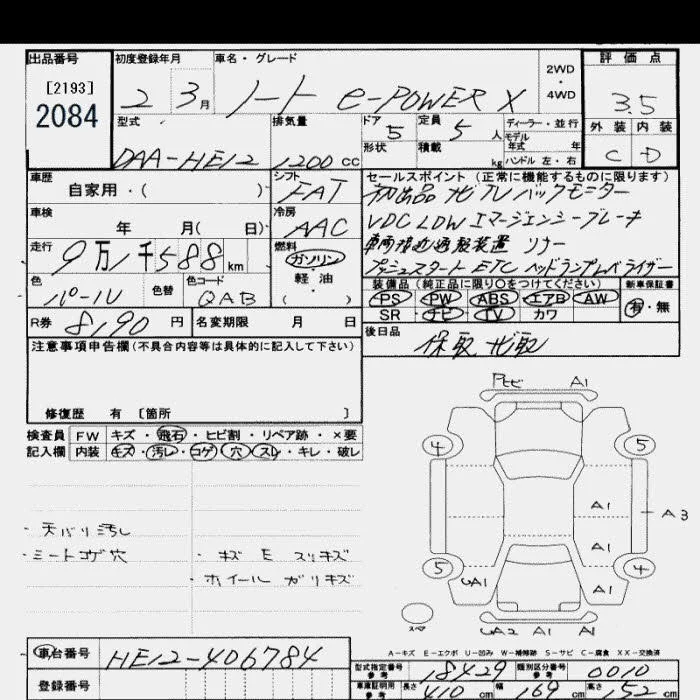 出品番号
[2193]
2084
初度登録年月
2 3月
車名・グレード
ノート e-POWER X
2WD
・
4WD
評価点
3.5
外装 内装
C D
型式
DAA-HE12
排気量
1200 cc
ドア
5
定員
5 人
形状
積載
kg
ディーラー・並行
モデル
年式 年
ハンドル 左・右
車歴
自家用・( )
シフト
FAT
車検
年 月( 日)
冷房
AAC
走行
9万1千588 km
燃料
ガソリン
軽油
( )
色
パール
色替
色コード
QAB
R券 8,190 円
名変期限 月 日
セールスポイント(正常に機能するものに限ります)
初出品 ナビ TV バックモニター
VDC LDW エマージェンシーブレーキ
車両接近通報装置 ソナー
プッシュスタート ETC ヘッドランプレベライザー
装備品(純正品に限り○をつけてください)
PS PW ABS エアB AW
SR ナビ TV カワ
新車保証書
有・無
後日品
保取 ナビ取
注意事項申告欄(不具合内容等は具体的に記入して下さい)
修復歴 有 [箇所 ]
検査員 FW キズ・飛石・ヒビ割・リペア跡・×要
記入欄 内装 キズ・汚レ・コゲ・穴・スレ・キレ・破レ
・天バリ汚し
・シートコゲ穴
・キズ E スリキズ
・ホイール ガリキズ
Pヒビ A1
4 5
A1
A3
A1
5 4
UA1 A1
スペア
UA2 A1 A1
A-キズ E-エクボ U-凹み W-補修跡 S-サビ C-腐食 XX-交換済
車台番号 HE12-406784
登録番号
型式指定番号
参考
18429
類別区分番号
参考
0010
車庫証明用
参考
長さ 410 cm 幅 169 cm 高さ 152 cm